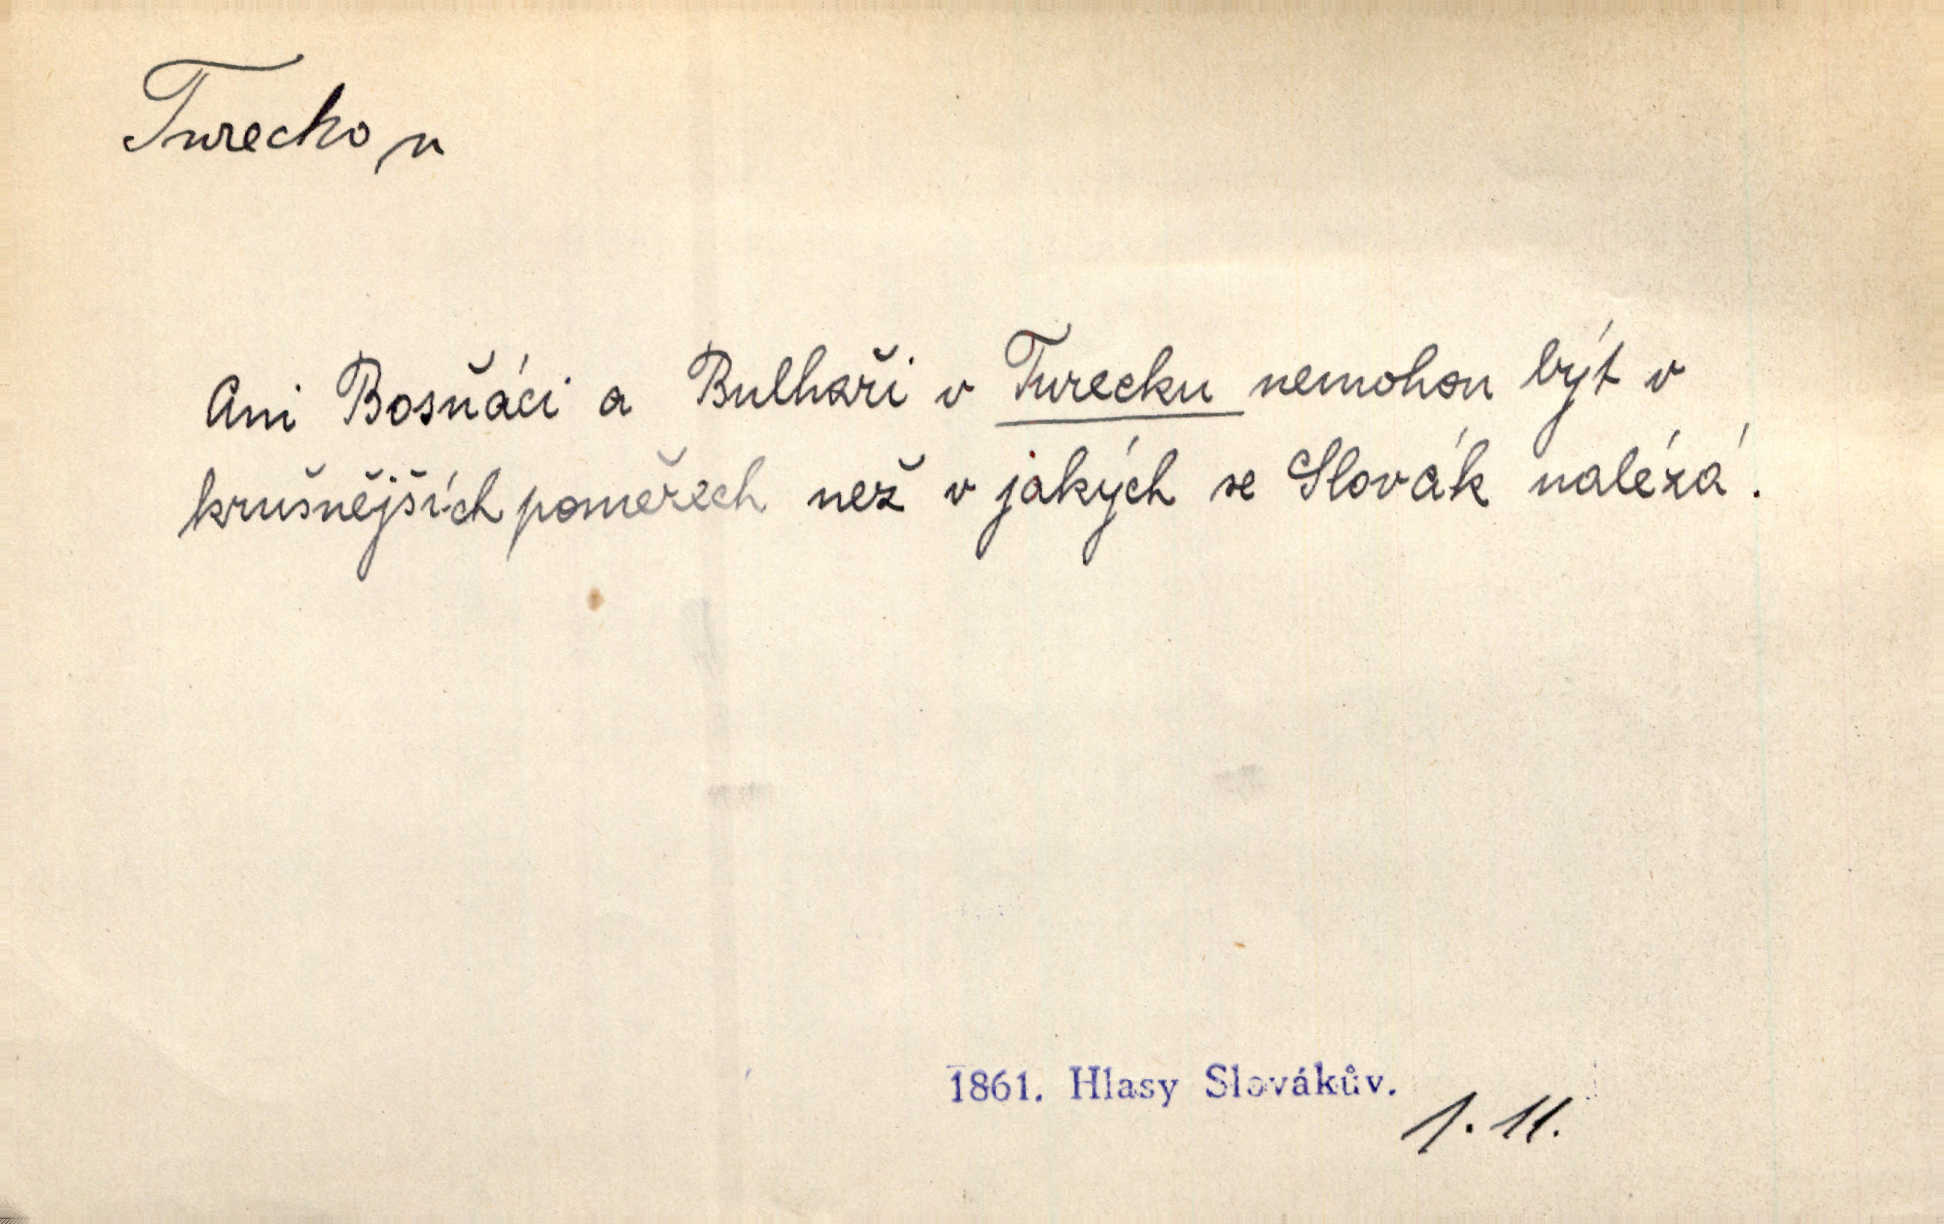 Turecko, n
Ani Bosňáci a Bulhaři v Turecku nemohou být v
krušnějších poměřech než v jakých se Slovák nalézá.
1861. Hlasy Slovákův.
1. 11.